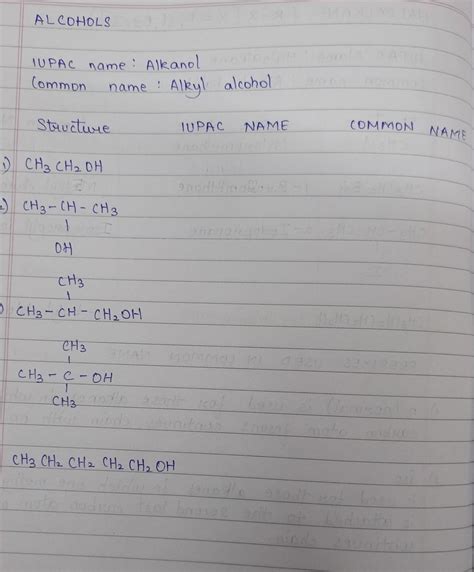 ALCOHOLS
IUPAC name : Alkanol
Common name : Alkyl alcohol
Structure IUPAC NAME COMMON NAME
1) CH3 CH2 OH
2) CH3 - CH - CH3
|
OH
CH3
|
CH3 - CH - CH2OH
CH3
|
CH3 - C - OH
|
CH3
CH3 CH2 CH2 CH2 CH2 OH